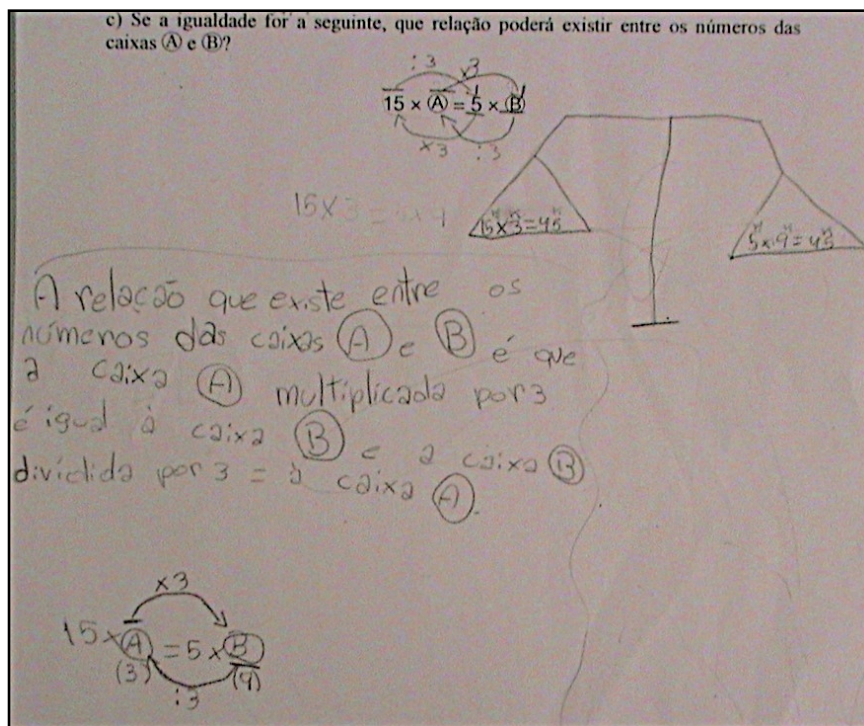 c) Se a igualdade for a seguinte, que relação poderá existir entre os números das
caixas Ⓐ e Ⓑ?
:3 x3
15 × Ⓐ = 5 × Ⓑ
x3 :3
15 x 3 = 5 x 9
15 x 3 = 45
5 x 9 = 45
A relação que existe entre os
números das caixas Ⓐ e Ⓑ é que
a caixa Ⓐ multiplicada por 3
é igual à caixa Ⓑ e a caixa Ⓑ
dividida por 3 = à caixa Ⓐ.
x3
15 x Ⓐ = 5 x Ⓑ
(3) (9)
:3